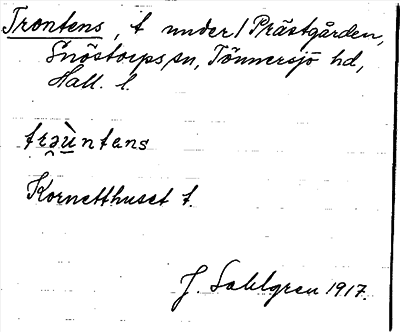 Trontens, t under 1 Prästgården,
Snöstorps sn, Tönnersjö hd,
Hall. l.
trəùntens
Kornetthuset t.
J. Sahlgren 1917.